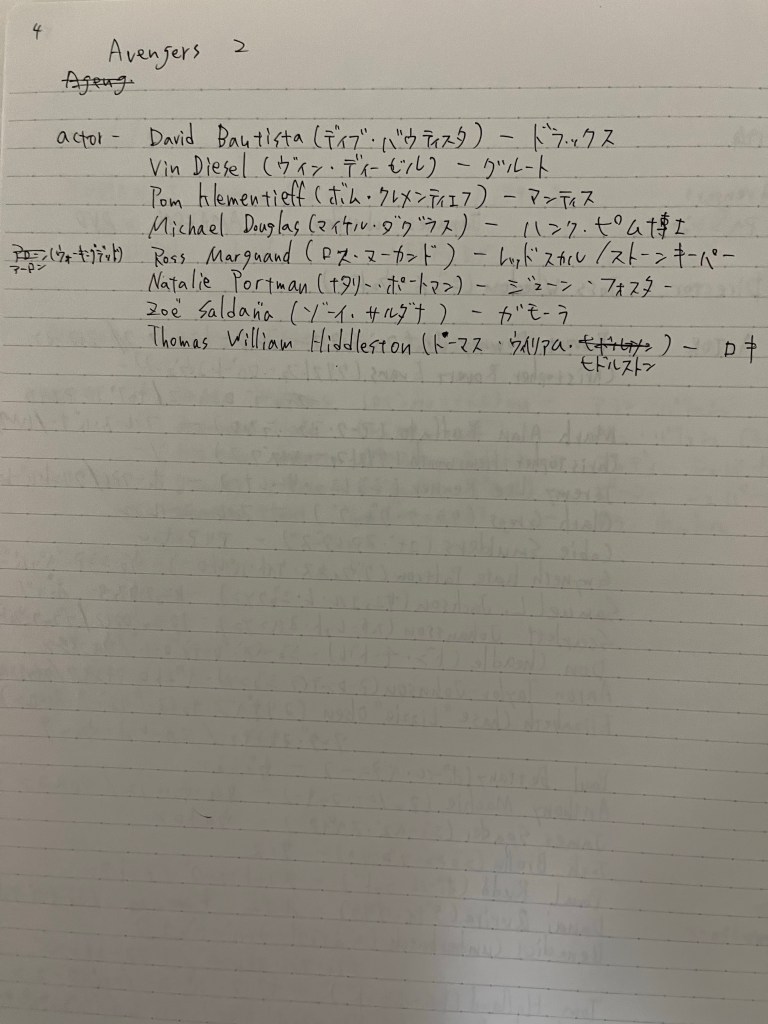 4
Avengers 2
Ageug.
actor - David Bautista (デイブ・バウティスタ) - ドラックス
Vin Diesel (ヴィン・ディーゼル) - グルート
Pom klementieff (ポム・クレメンティエフ) - マンティス
Michael Douglas (マイケル・ダグラス) - ハンク・ピム博士
アローン (ウォーキングデッド) Ross Marguand (ロス・マーカンド) - レッドスカル / ストーンキーパー
アーロン
Natalie Portman (ナタリー・ポートマン) - ジェーン・フォスター
Zoë Saldaña (ゾーイ・サルダナ) - ガモーラ
Thomas William Hiddleston (トーマス・ウイリアム・) - ロキ
ヒドルストン